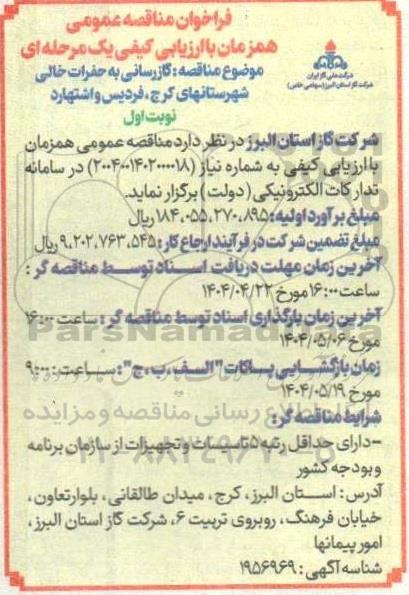 فراخوان مناقصه عمومی
همزمان با ارزیابی کیفی یک مرحله ای
شرکت ملی گاز ایران
شرکت گاز استان البرز (سهامی خاص)
موضوع مناقصه: گازرسانی به حفرات خالی
شهرستانهای کرج، فردیس و اشتهارد
نوبت اول
شرکت گاز استان البرز در نظر دارد مناقصه عمومی همزمان
با ارزیابی کیفی به شماره نیاز (۲۰۰۴۰۰۱۴۰۲۰۰۰۰۱۸) در سامانه
تدارکات الکترونیکی (دولت) برگزار نماید.
مبلغ برآورد اولیه: ۱۸۴،۰۵۵،۲۷۰،۸۹۵ ریال
مبلغ تضمین شرکت در فرآیند ارجاع کار: ۹،۲۰۲،۷۶۳،۵۴۵ ریال
آخرین زمان مهلت دریافت اسناد توسط مناقصه گر:
ساعت ۱۶:۰۰ مورخ ۱۴۰۴/۰۴/۲۲
آخرین زمان بارگذاری اسناد توسط مناقصه گر: ساعت ۱۶:۰۰
مورخ ۱۴۰۴/۰۵/۰۶
ParsNamadData
زمان بازگشایی پاکات "الف، ب، ج": ساعت: ۹:۰۰
مورخ ۱۴۰۴/۰۵/۱۹
شرایط مناقصه گر:
-دارای حداقل رتبه ۵ تاسیسات و تجهیزات از سازمان برنامه
و بودجه کشور
آدرس: استان البرز، کرج، میدان طالقانی، بلوار تعاون،
خیابان فرهنگ، روبروی تربیت ۶، شرکت گاز استان البرز،
امور پیمانها
شناسه آگهی: ۱۹۵۶۹۶۹